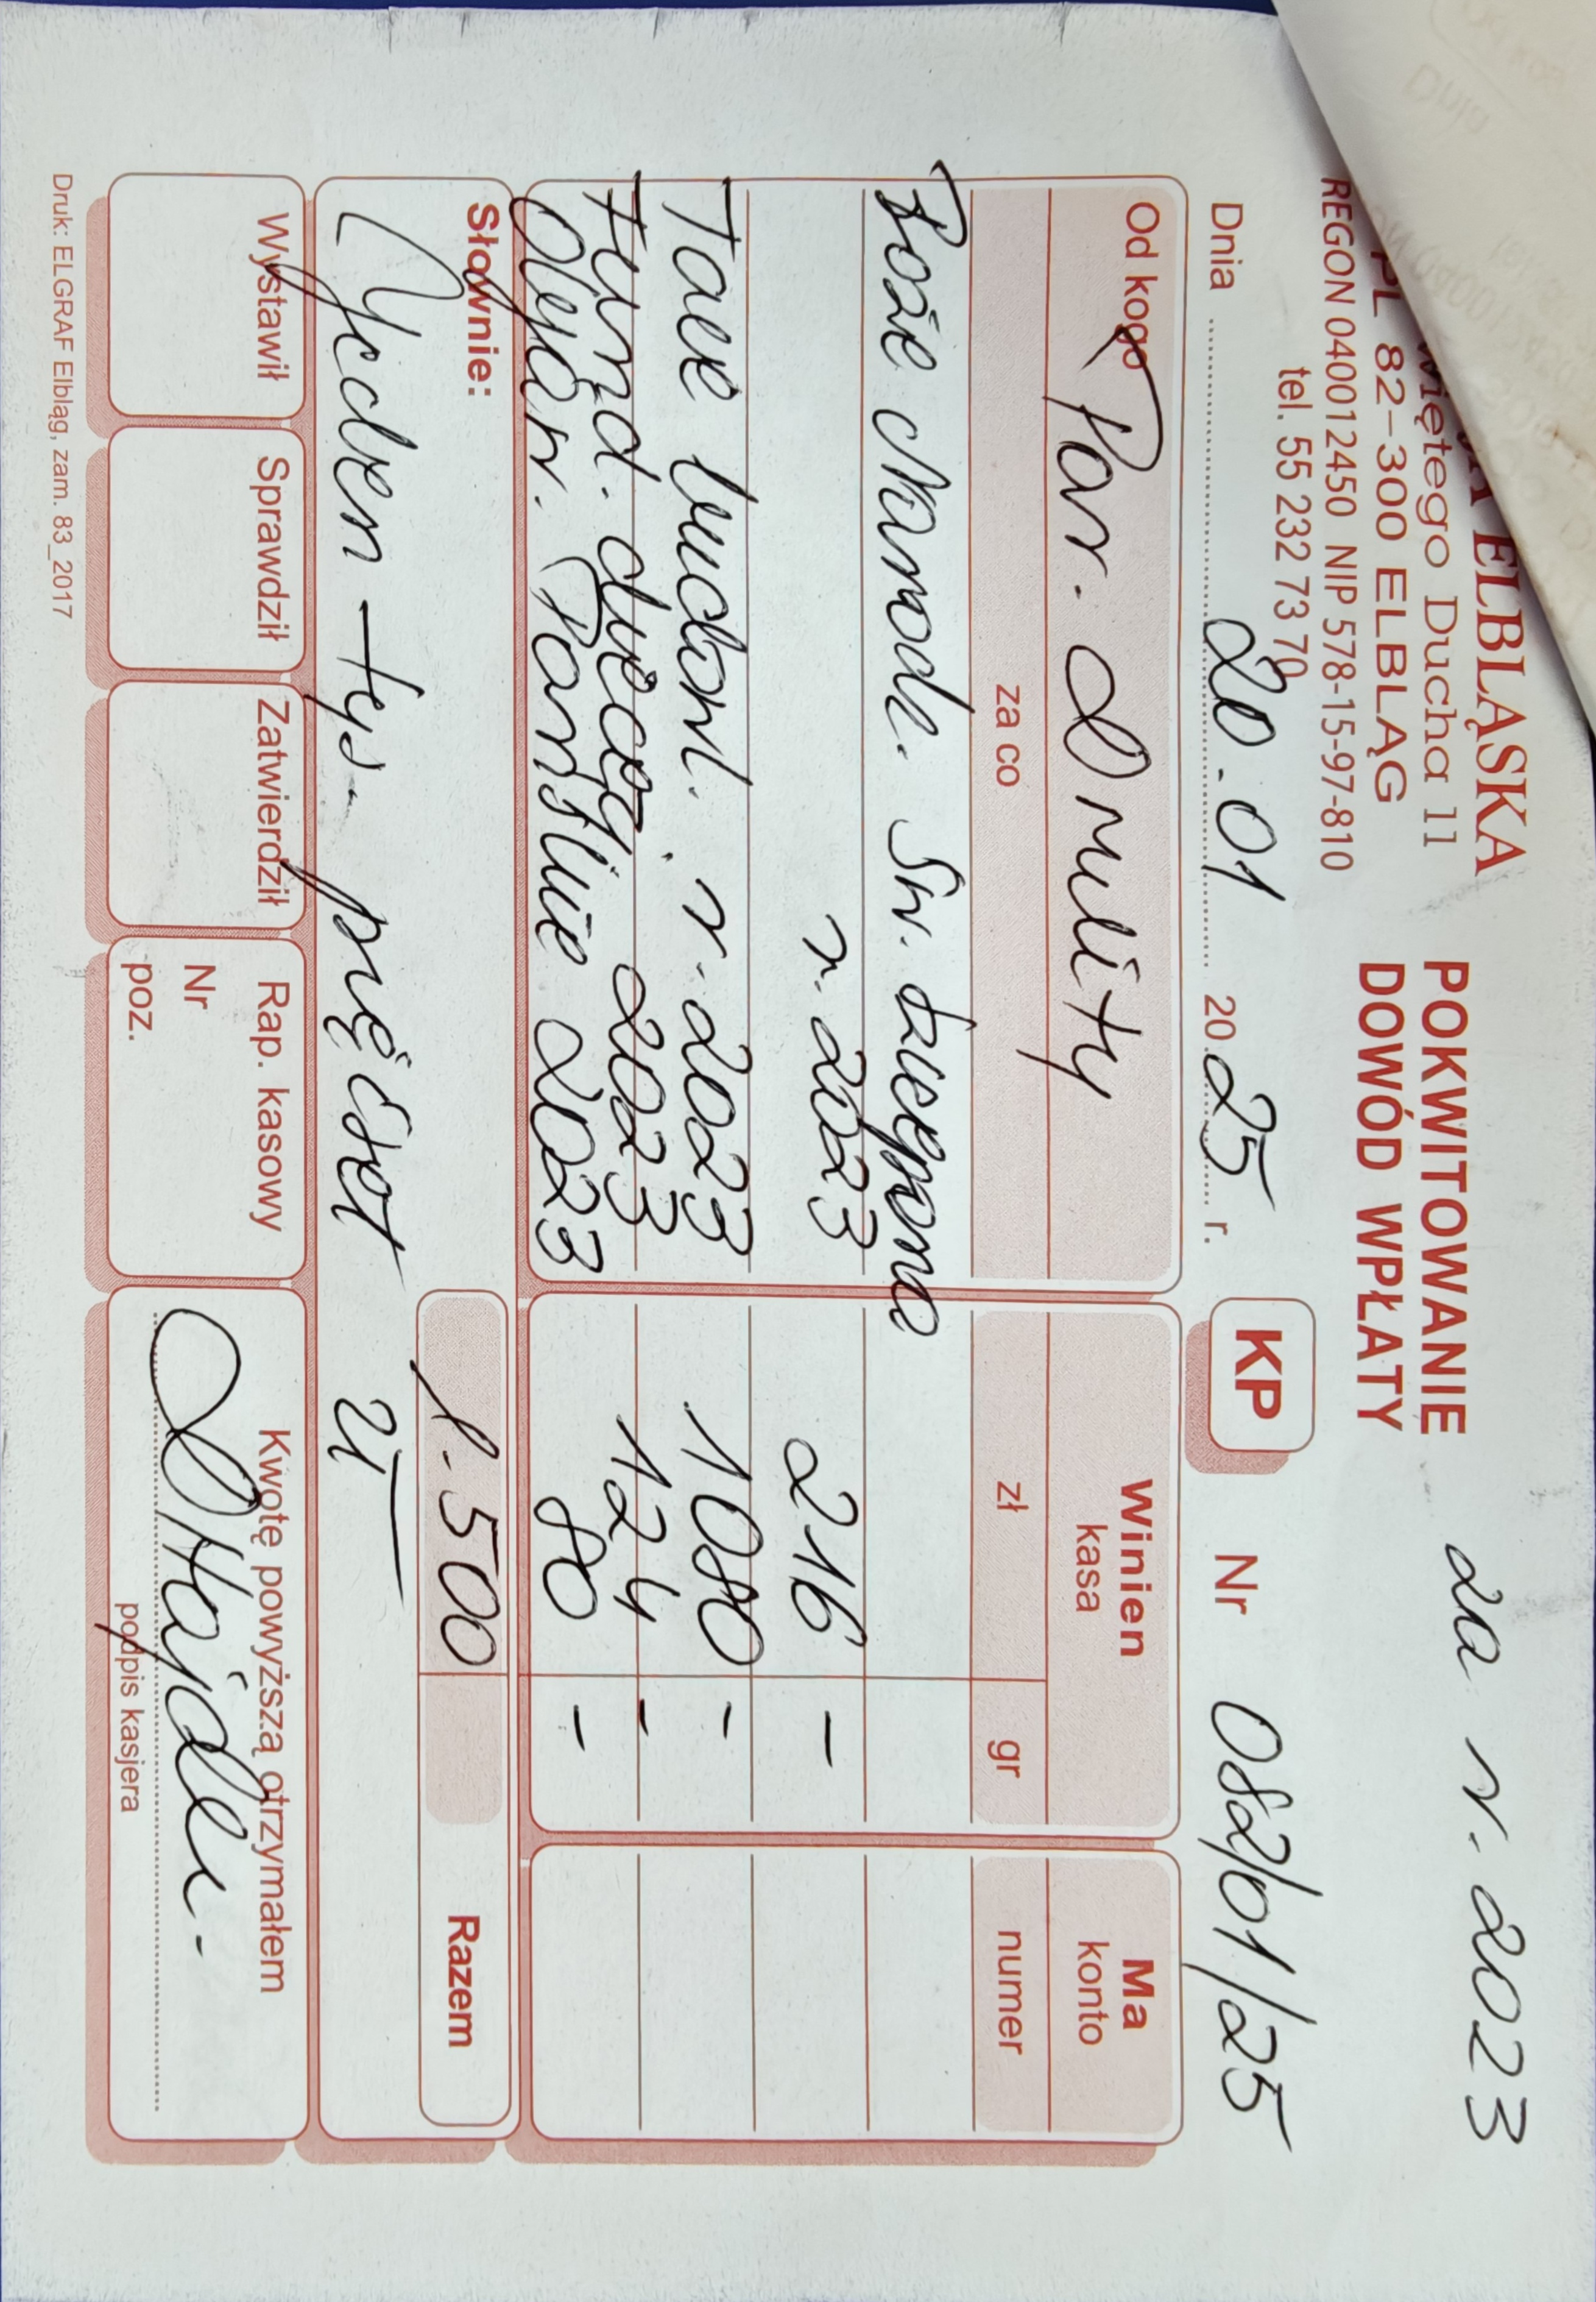 za r. 2023
ELBLĄSKA
Ducha 11
PL 82-300 ELBLĄG
REGON 040012450 NIP 578-15-97-810
tel. 55 232 73 70
POKWITOWANIE
DOWÓD WPŁATY
Dnia 20.01 20 25 r.
KP
Nr 082/01/25
Od kogo Par. Drulity
Winien
kasa
Ma
konto
za co
zł
gr
numer
Boże Narodz. Św.
r. 2023 216 -
r. 2023 1080 -
Fund. 2023 124 -
2023 80 -
Słownie:
1.500
Razem
Jeden tys. pięćset zł
Wystawił
Sprawdził
Zatwierdził
Rap. kasowy
Nr
poz.
Kwotę powyższą otrzymałem
podpis kasjera
Druk: ELGRAF Elbląg, zam. 83_2017